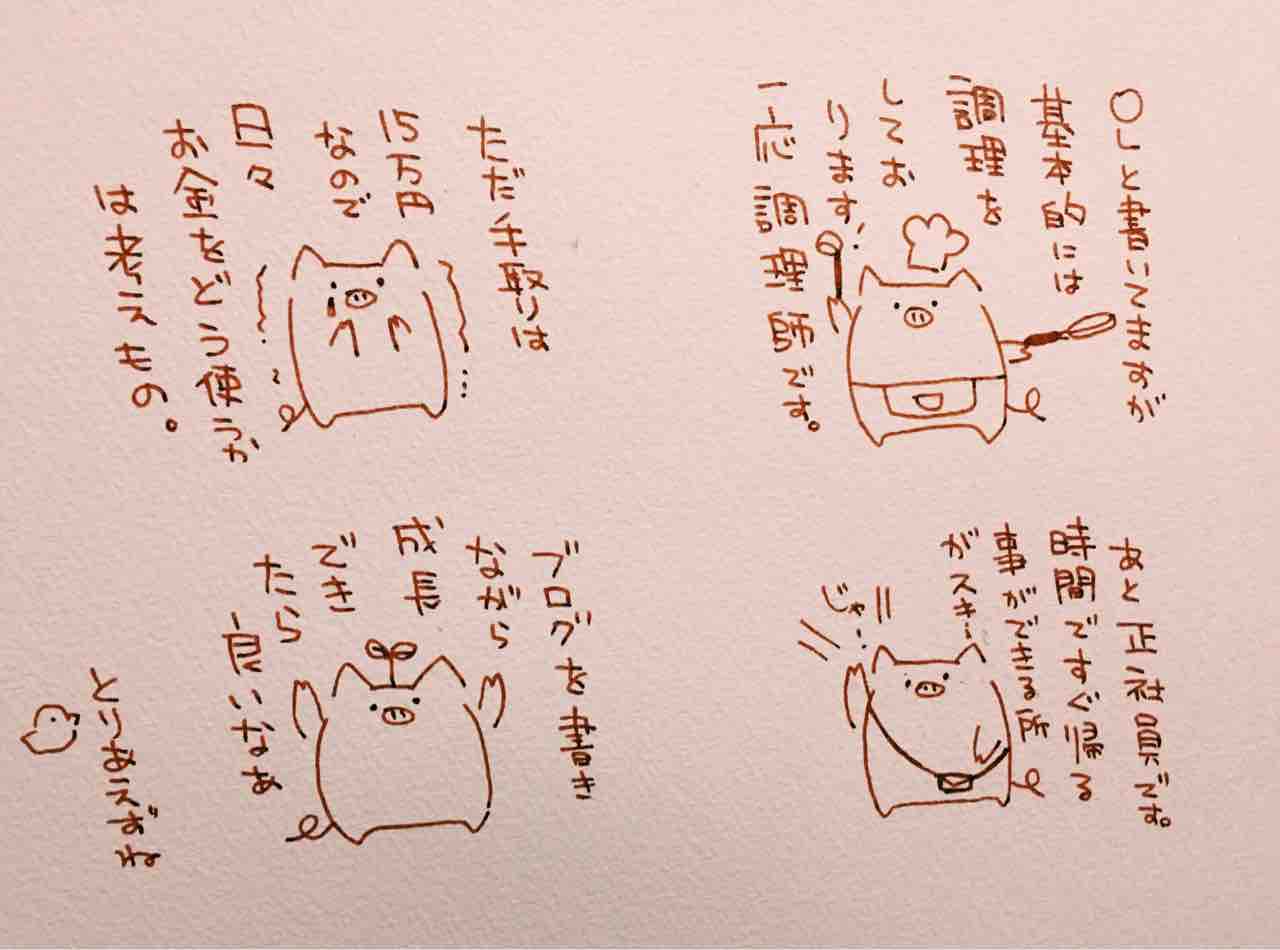 OLと書いてますが
基本的には
調理を
してお
ります、
一応調理師です。
あと正社員です。
時間ですぐ帰る
事ができる所
がスキー
じゃ…
ただ手取りは
15万円
なので
日々
お金をどう使うか
は考えもの。
ブログを書き
ながら
成長
でき
たら
良いなぁ
とりあえずね